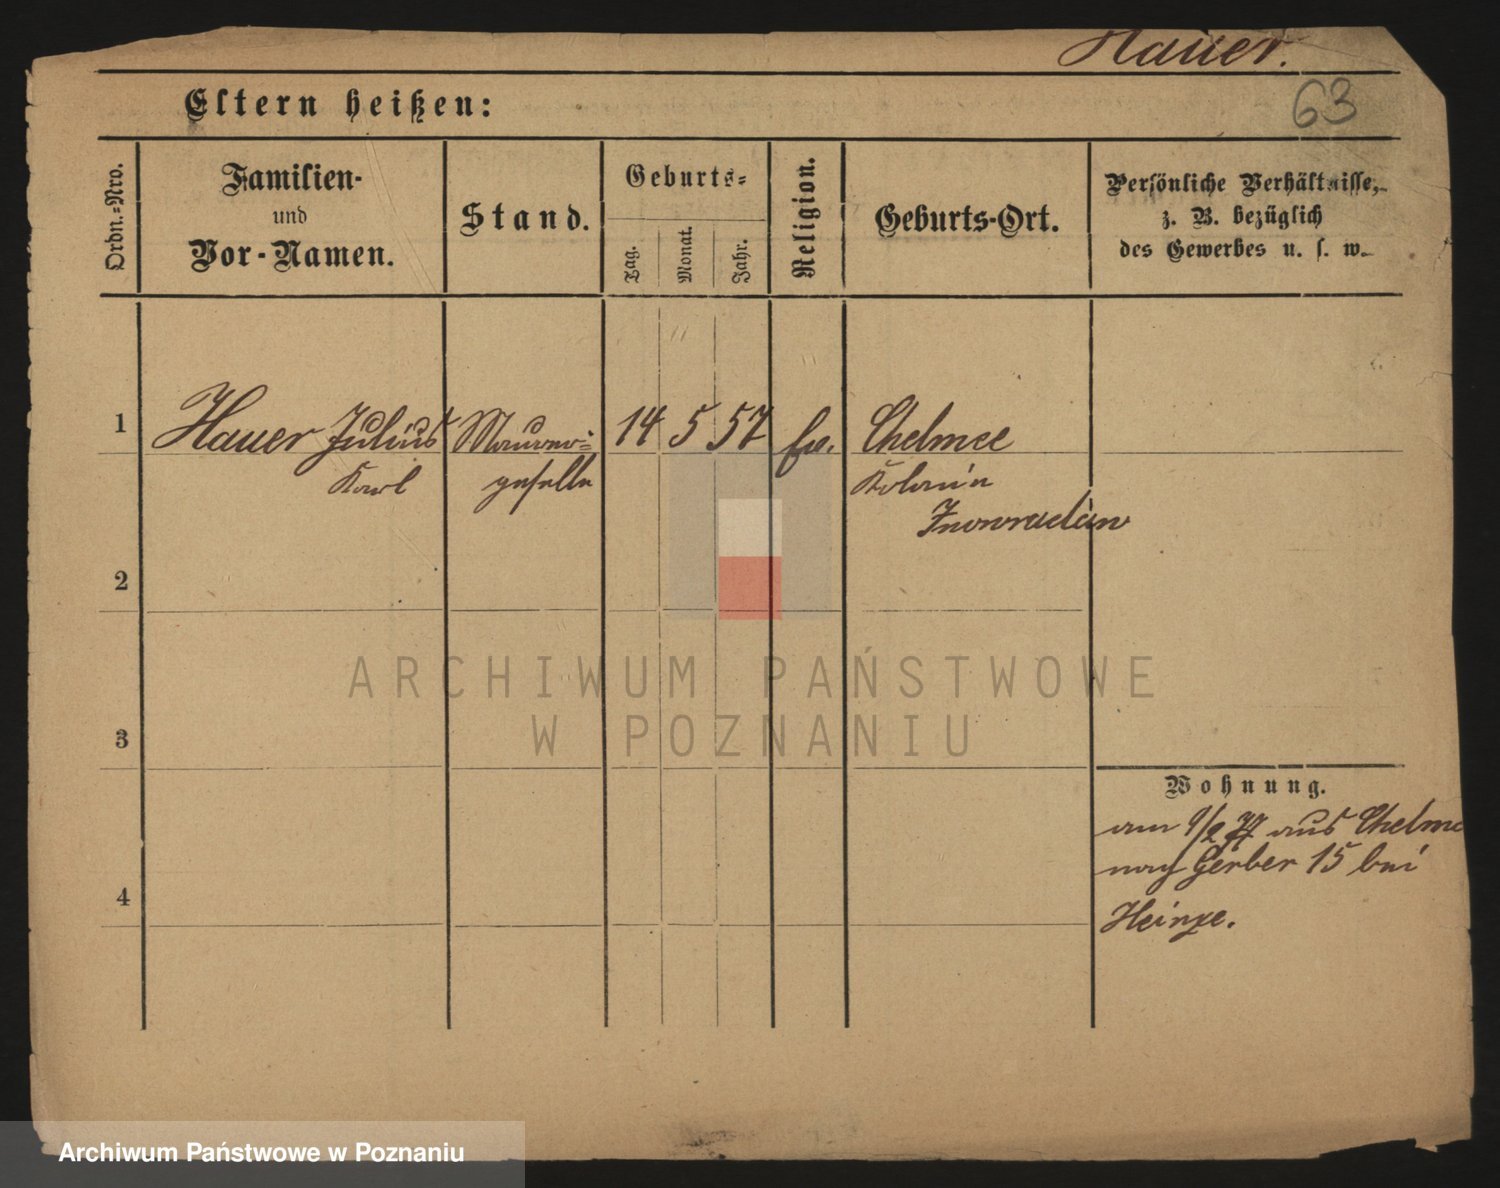 Hauer.
63
Eltern heißen:
Ordn.-Nro.
Familien-
und
Vor-Namen.
Stand.
Geburts-
Tag.
Monat.
Jahr.
Religion.
Geburts-Ort.
Persönliche Verhältnisse,
z. B. bezüglich
des Gewerbes u. s. w.
1 Hauer Julius Maurer- 14 5 57 ev. Chelmce
Karl geselle Kolonie
Inowraclaw
2
3
4
Wohnung.
am 9/2 77 aus Chelmce
nach Gerber 15 bei
Heinze.
ARCHIWUM PAŃSTWOWE
W POZNANIU
Archiwum Państwowe w Poznaniu